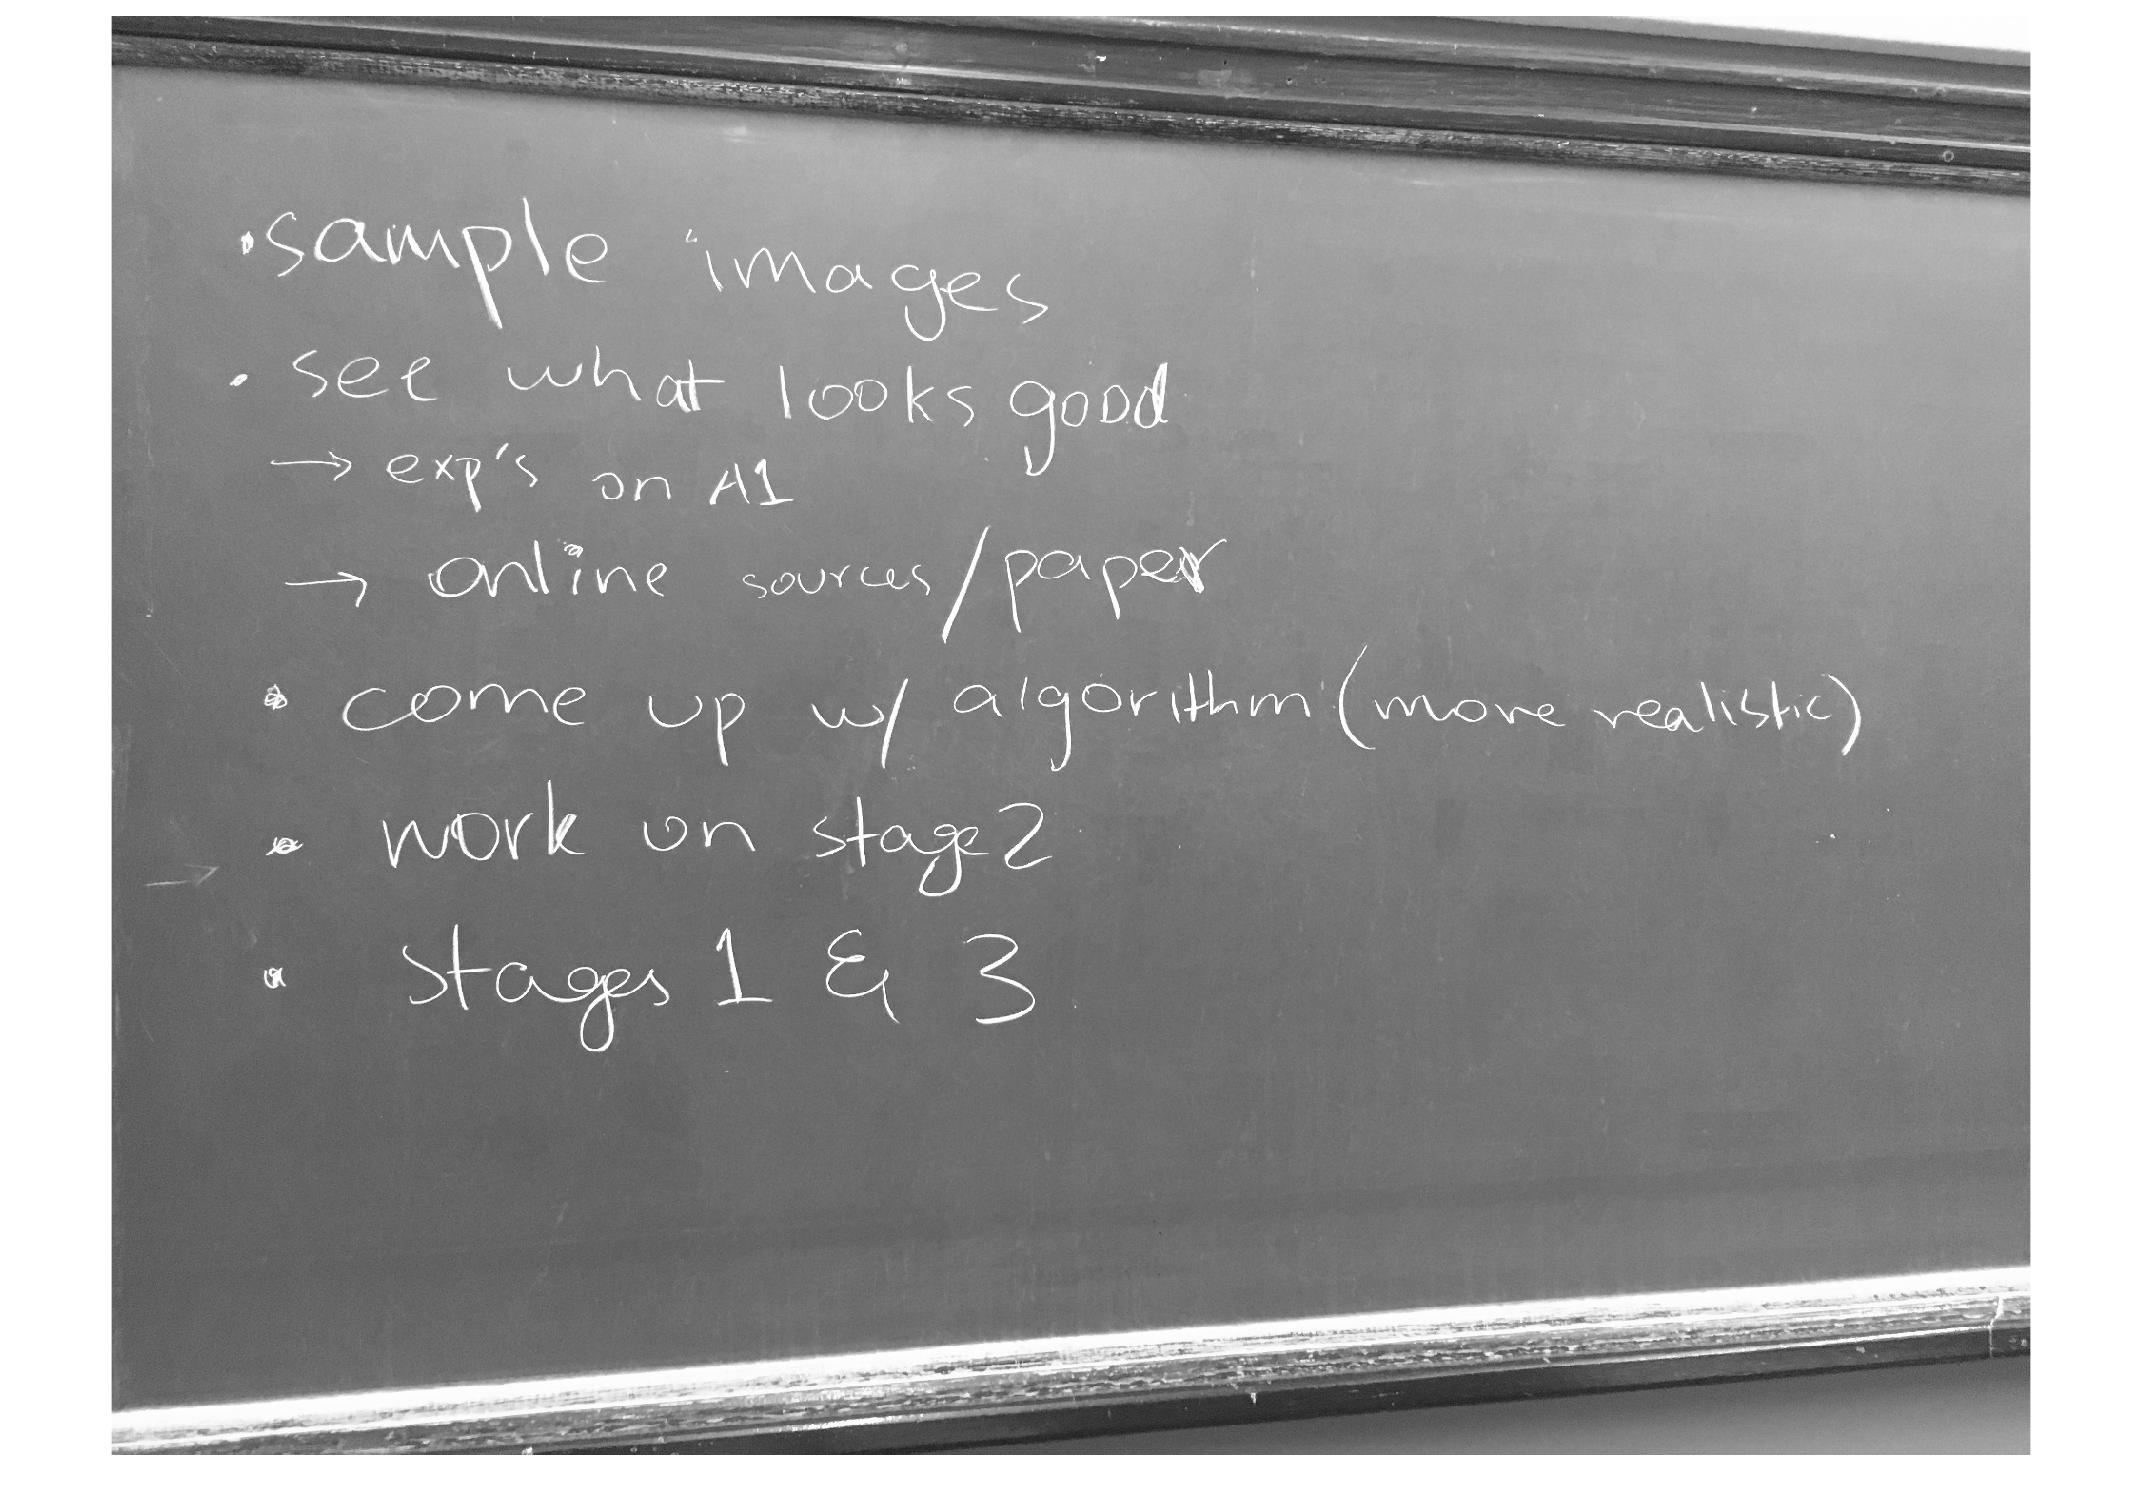 • sample images
• see what looks good
→ exp's on A1
→ online sources/paper
• come up w/ algorithm (more realistic)
• work on stage 2
• stages 1 & 3